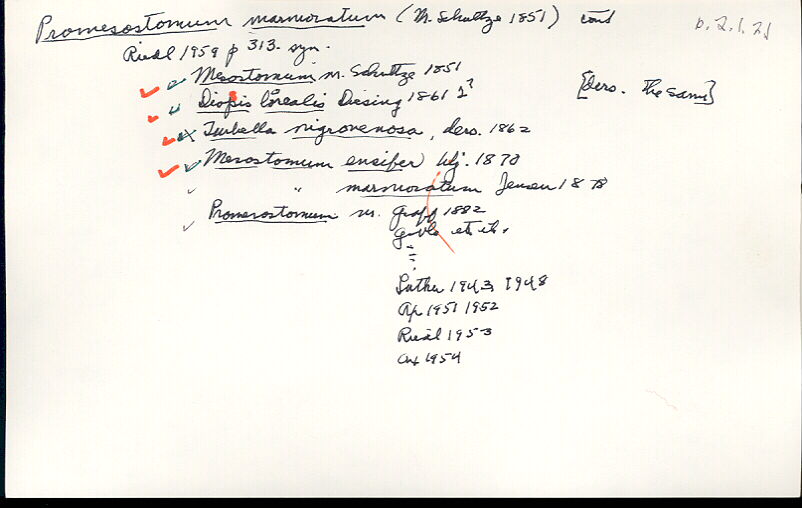 Promesostomum marmoratum (M. Schultze 1851) cont
p. 2.1.21
Riedl 1959 p 313. syn.
Mesostomum m. Schultze 1851
Diopis borealis Diesing 1861 ?
[ders. The same]
Turbella nigrovenosa, ders. 1862
Mesostomum ensifer Ulj. 1870
" marmoratum Jensen 1878
Promesostomum m. Graff 1882
etc.
Luther 1943, 1948
Ax 1951 1952
Riedl 1953
Ax 1954